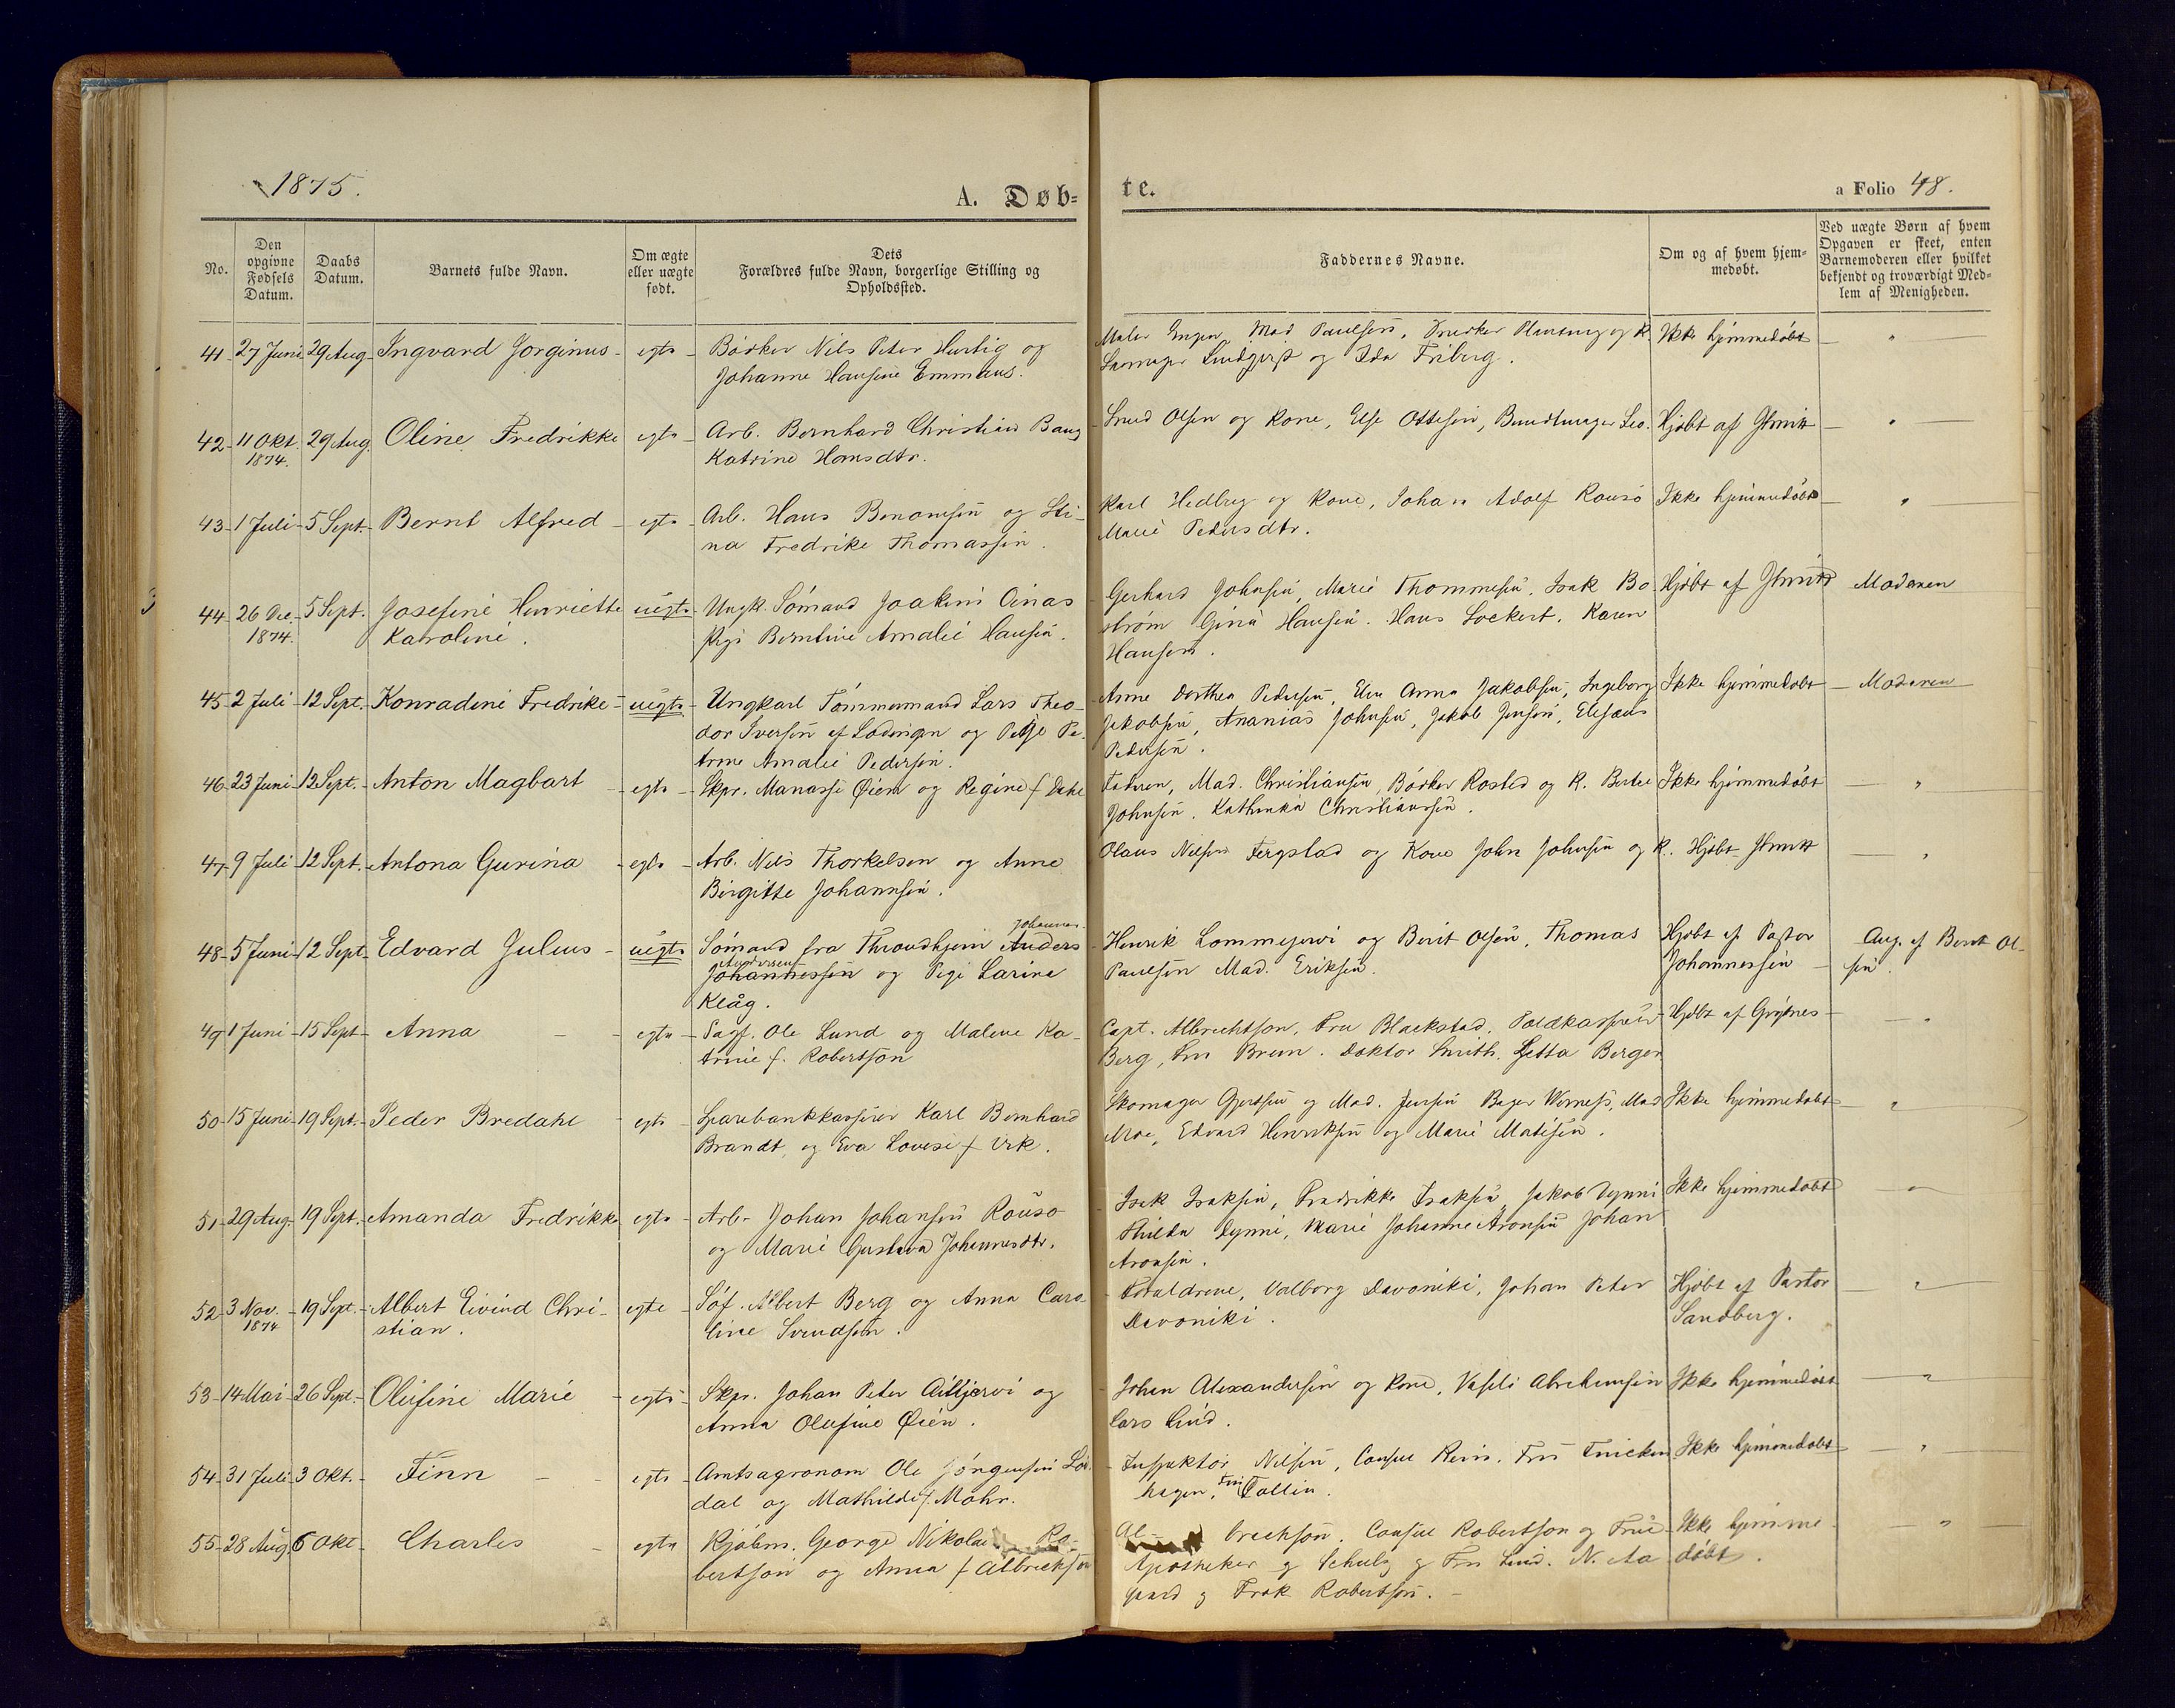 1875.
A. Døb-
te.
a Folio 48.
No.
Den opgivne Fødsels Datum.
Daabs Datum.
Barnets fulde Navn.
Om ægte eller uægte født.
Dets Forældres fulde Navn, borgerlige Stilling og Opholdssted.
Faddernes Navne.
Om og af hvem hjemmedøbt.
Ved uægte Børn af hvem Opgaven er skeet, enten Barnemoderen eller hvilket bekjendt og troværdigt Medlem af Menigheden.
41 27 Juni 29 Aug Ingvard Jorginus egte Bödker Nils Peter Hurtig og
Johanne Hansine Emmaus.
Maler Engen, Mad Paulsen, og K.
og Ida Friberg.
Ikke hjemmedøbt "
42 11 Okt. 1874. 29 Aug. Oline Fredrikke egte Arb. Bernhard Christian Bang
Katrine Hansdtr.
Smed Olsen og Kone, Else Ottesen, Bundtmager Leo.
Hjdøbt af "
43 1 Juli 5 Sept. Bernt Alfred egte Arb. Hans Benonisen og Sti-
na Fredrike Thomassen.
Karl Hedberg og Kone, Johan Adolf Rousö
Marie Pedersdtr.
Ikke hjemmedøbt "
44 26 Dec. 1874. 5 Sept. Josefine Henriette uegte Ungk. Sömand Joakim Oinas
Karoline.
Pige Berntine Amalie Hansen.
Gerhard Johnsen, Marie Thommesen, Isak Bo
ström Gina Hansen. Hans Lockert. Karen
Hansen.
Hjdøbt af Moderen
45 2 Juli 12 Sept. Konradine Fredrike uegte Ungkarl Tömmermand Lars Theo-
dor Iversen af Lødingen og Pige Pe-
trine Amalie Pedersen.
Anne Dorthea Pedersen, Elen Anna Jakobsen, Ingeborg
Jakobsen, Ananias Johnsen, Jakob Jensen, Elesæus
Pedersen.
Ikke hjemmedøbt Moderen
46 23 Juni 12 Sept. Anton Magbart egte Skpr. Manasse Øien og Regine f Dahl
Faderen, Mad. Christiansen, Bödker Rosted og K.
Johnsen. Kathinka Christiansen.
Ikke hjemmedøbt "
47 9 Juli 12 Sept. Antona Gurina egte Arb. Nils Thorkelsen og Anne
Birgitte Johannsen.
Olaus Nilsen Fergstad og Kone John Johnsen og K.
Hjdøbt "
Johannes
48 5 Juni 12 Sept Edvard Julius uegte Sömand fra Throndhjem Anders
Andersen
Johannessen og Pige Larine
Klåg.
Henrik Lommejervi og Berit Olsen, Thomas
Paulsen Mad. Eriksen.
Hjdøbt af Pastor
Johannessen
Ang. af Berit Ol-
sen.
49 1 Juni 15 Sept Anna egte Sagf. Ole Lund og Malene Ka-
trine f. Robertson
Capt. Albrechtson, Fru Blackstad, Toldkasserer
Berg, Fru Brun. Doktor Smith. Jetta Berger
Hjdøbt af "
50 15 Juni 19 Sept. Peder Bredahl egte Sparebankkasserer Karl Bernhard
Brandt, og Eva Lovise f Urk.
Skomager Gjertsen og Mad. Jensen Bager Werness, Mad
Moe, Edvard Henriksen og Marie Mathisen.
Ikke hjemmedøbt "
51 29 Aug. 19 Sept. Amanda Fredrikke egte Arb. Johan Johansen Rousö
og Marie Gustava Johannesdtr.
Isak Isaksen, Fredrikke Isaksen, Jakob Dynni
Hulda Dynni, Marie Johanne Aronsen Johan
Aronsen.
Ikke hjemmedøbt "
52 3 Nov. 1874 19 Sept. Albert Eivind Chri- egte Söf. Albert Berg og Anna Caro
stian. line Svendsen.
Forældrene, Valborg Davoniki, Johan Peter
Davoniki.
Hjdøbt af Pastor
Sandberg. "
53 14 Mai 26 Sept. Olufine Marie egte Skpr. Johan Peter Aitijervi og
Anna Olufine Øien.
Johan Alexandersen og Kone, Abrahamsen
Lars Lind.
Ikke hjemmedøbt "
54 31 Juli 3 Okt. Finn egte Amtsagronom Ole Jörgensen
dal og Mathilde f. Mohr.
Inspektör Nilsen, Consul Rein. Fru Finchen
hagen, Fru Collin.
Ikke hjemmedøbt "
55 28 Aug. 6 Okt Charles egte Kjöbm. George Nikolai Ro-
bertson og Anna f Albrechtson
Al- brechtson, Consul Robertson og Frue
Apotheker g Schulz g Fru Lund. N. Aa
gaard g Frøk Robertson.
Ikke hjemme
døbt. "